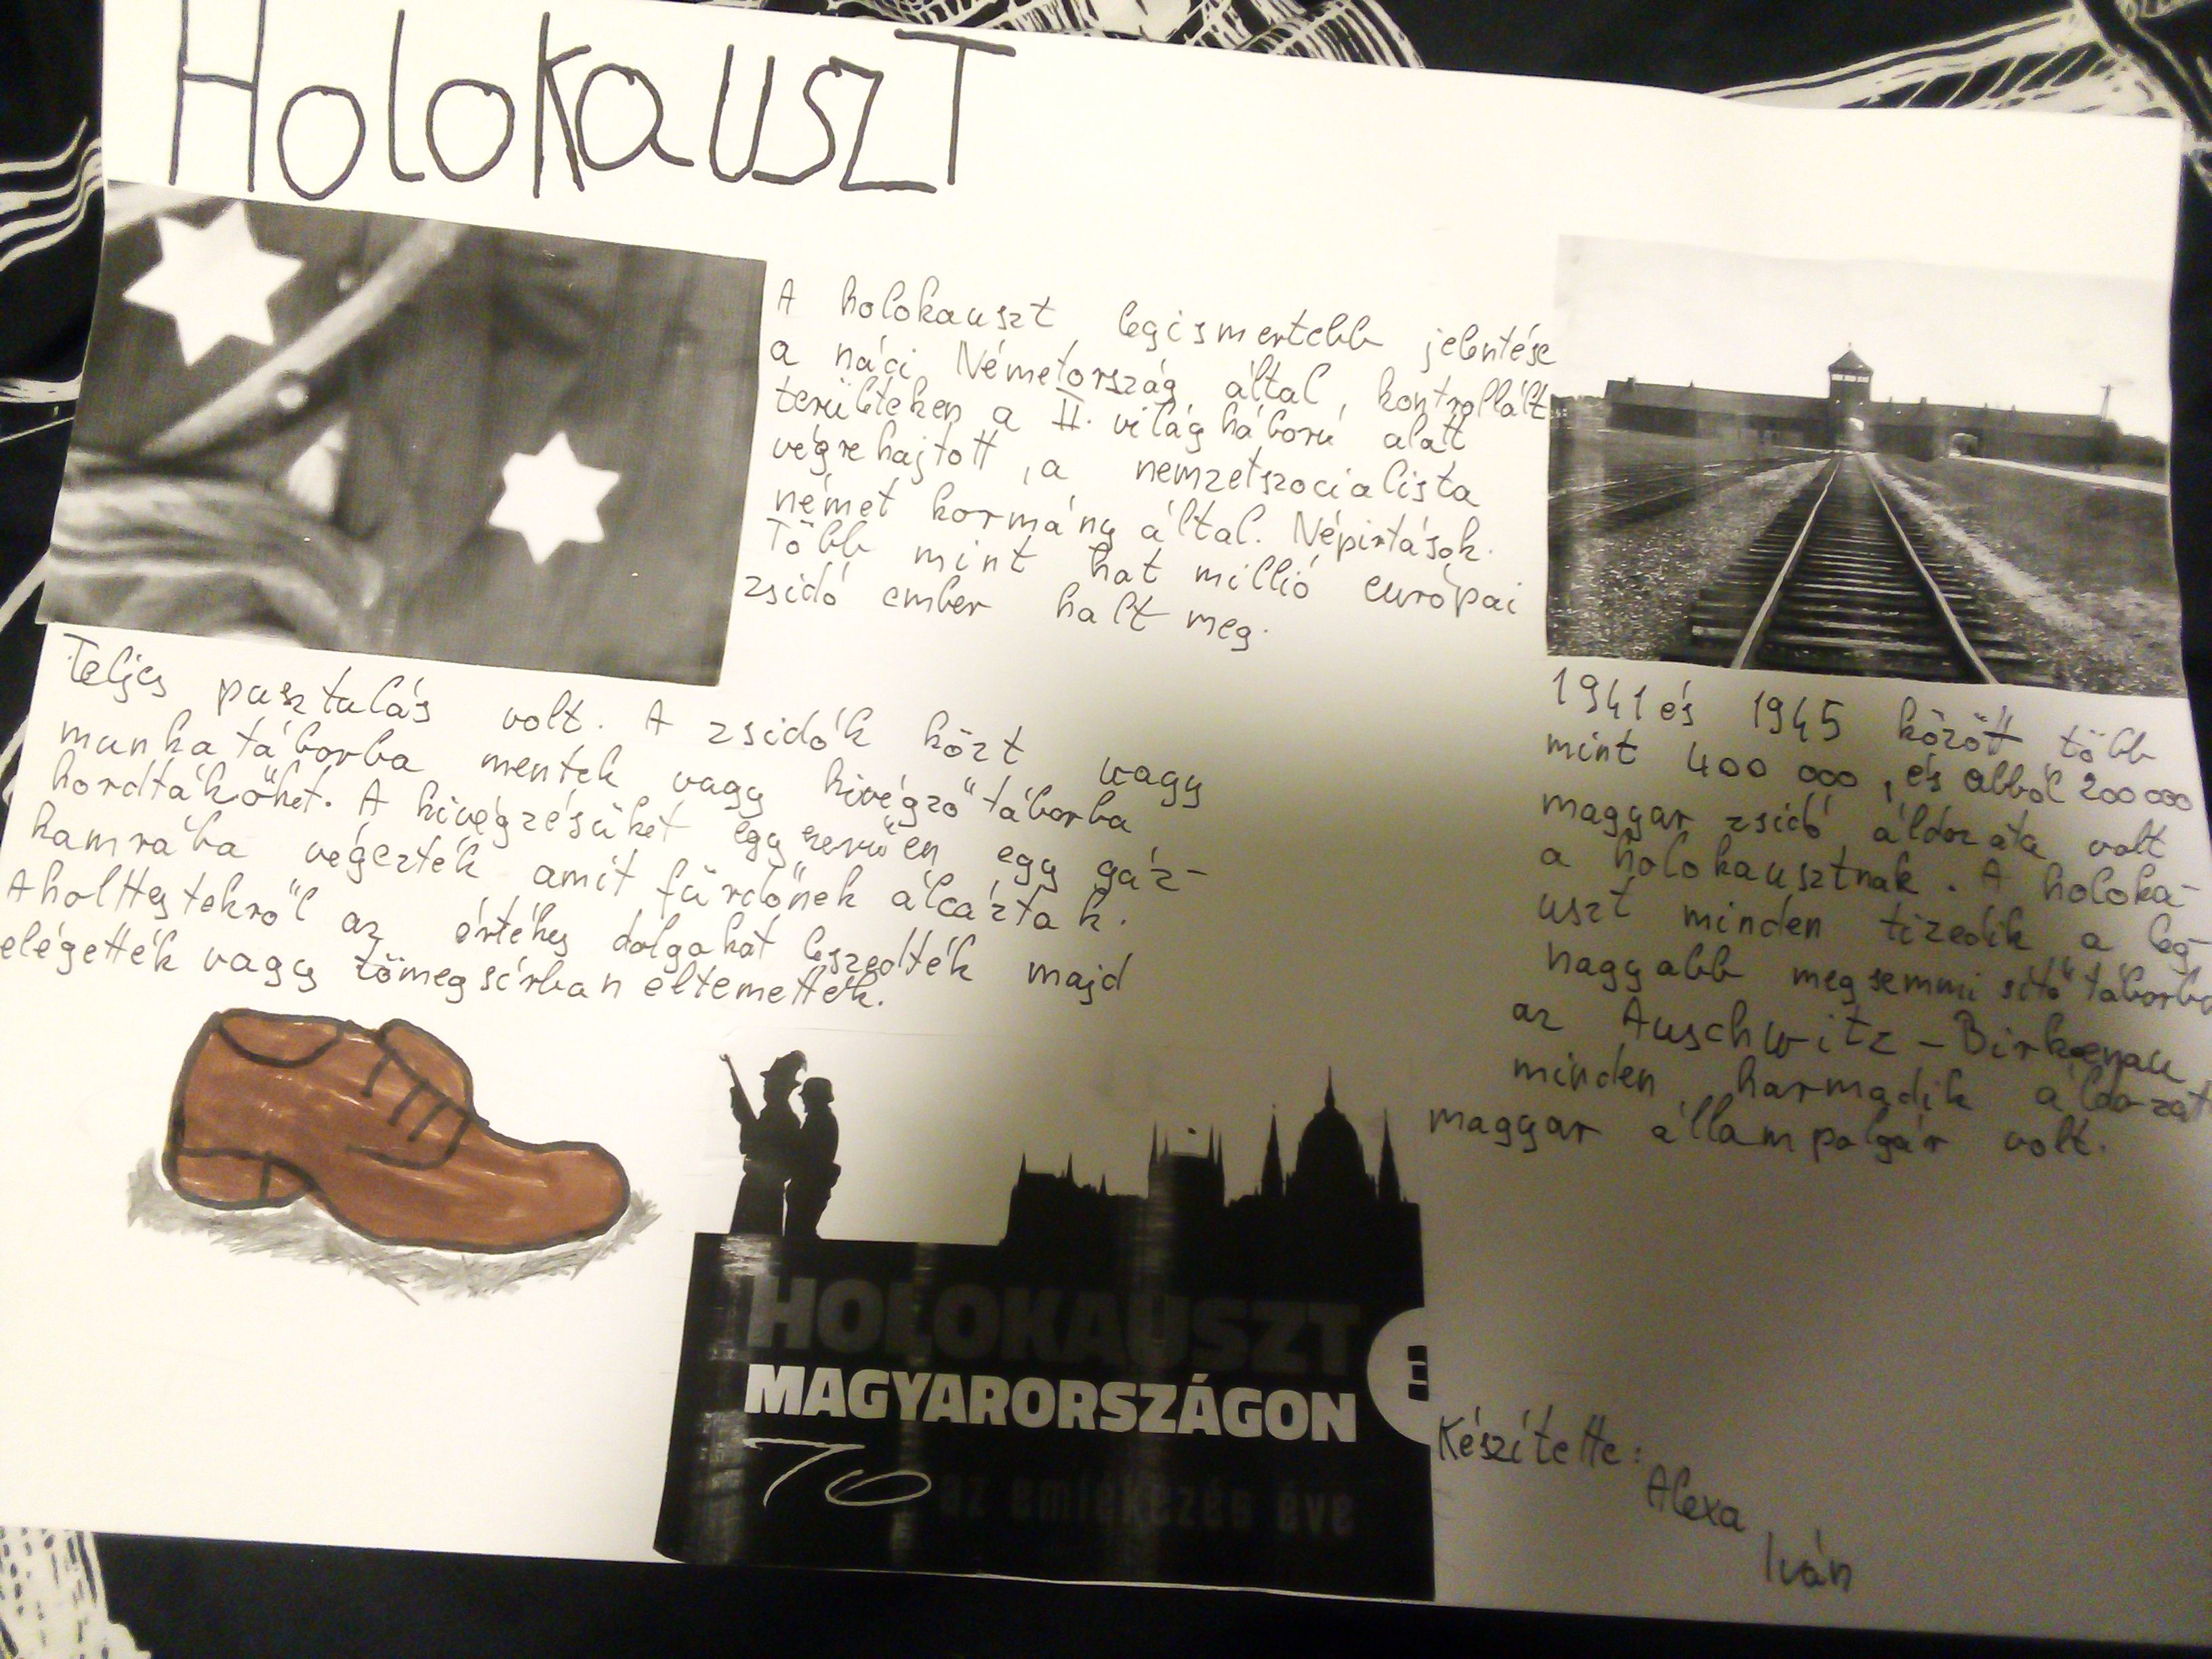 HolokauszT
A holokauszt legismertebb jelentése
a náci Németország által, kontrollált
terülteken a II. világháború alatt
végrehajtott, a nemzetszocialista
német kormány által. Népirtások.
Több mint hat millió európai
zsidó ember halt meg.
Teljes pusztulás volt. A zsidók közt vagy
munkatáborba mentek vagy kivégző táborba
hordták őket. A kivégzésüket egyszerűen egy gáz-
kamrába végezték amit fürdőnek álcáztak.
A holttestekről az értékes dolgakat leszedték majd
elégették vagy tömegsírban eltemették.
1941 és 1945 között több
mint 400 000, és abból 200 000
magyar zsidó áldozata volt
a holokausztnak. A holoka-
uszt minden tizedik a leg-
nagyabb megsemmisítő táborba
az Auschwitz-Birkenau
minden harmadik áldozat
magyar állampolgár volt.
HOLOKAUSZT
MAGYARORSZÁGON
70 az emlékezés éve
Készítette:
Alexa
Iván